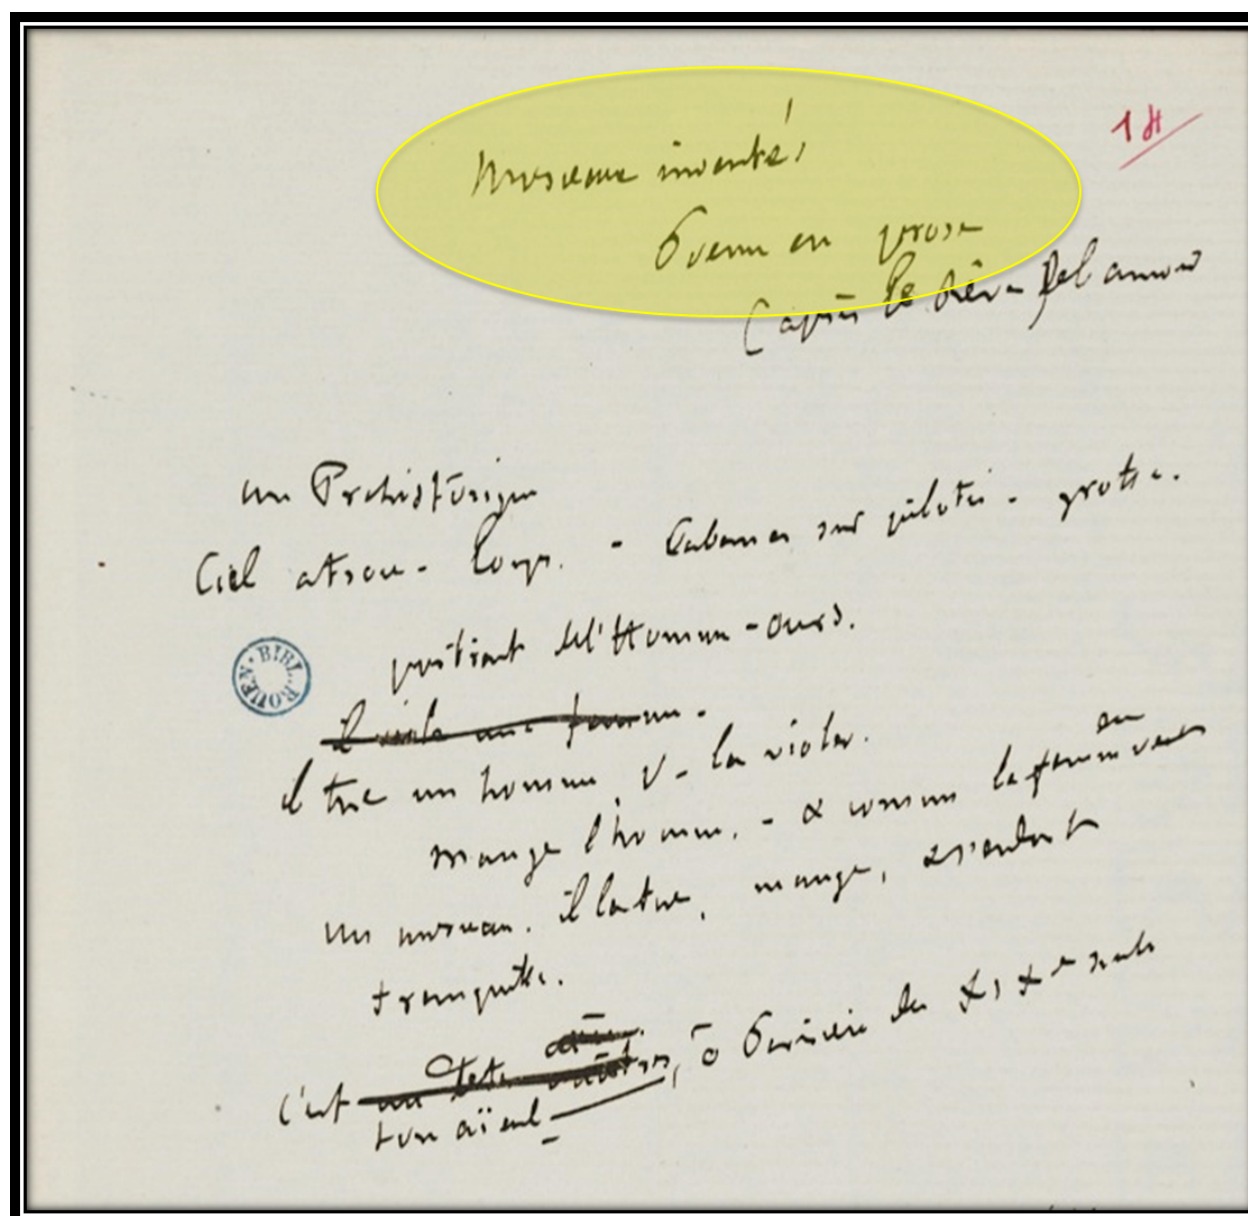 morceaux inventés
Poème en prose
(après le rêve de l'amour
1H
un Préhistorique
Ciel atroce - loups. - Cabanes sur pilotis - grotte.
portrait de l'Homme-ours.
il viole une femme.
il tue un homme, p. la violer.
mange l'homme. - & comme la femme en veut
un morceau. il la tue, mange, & s'endort
tranquille.
C'est un
ton aïeul, ô Parisien du XIXe siècle
BIBL. ROUEN